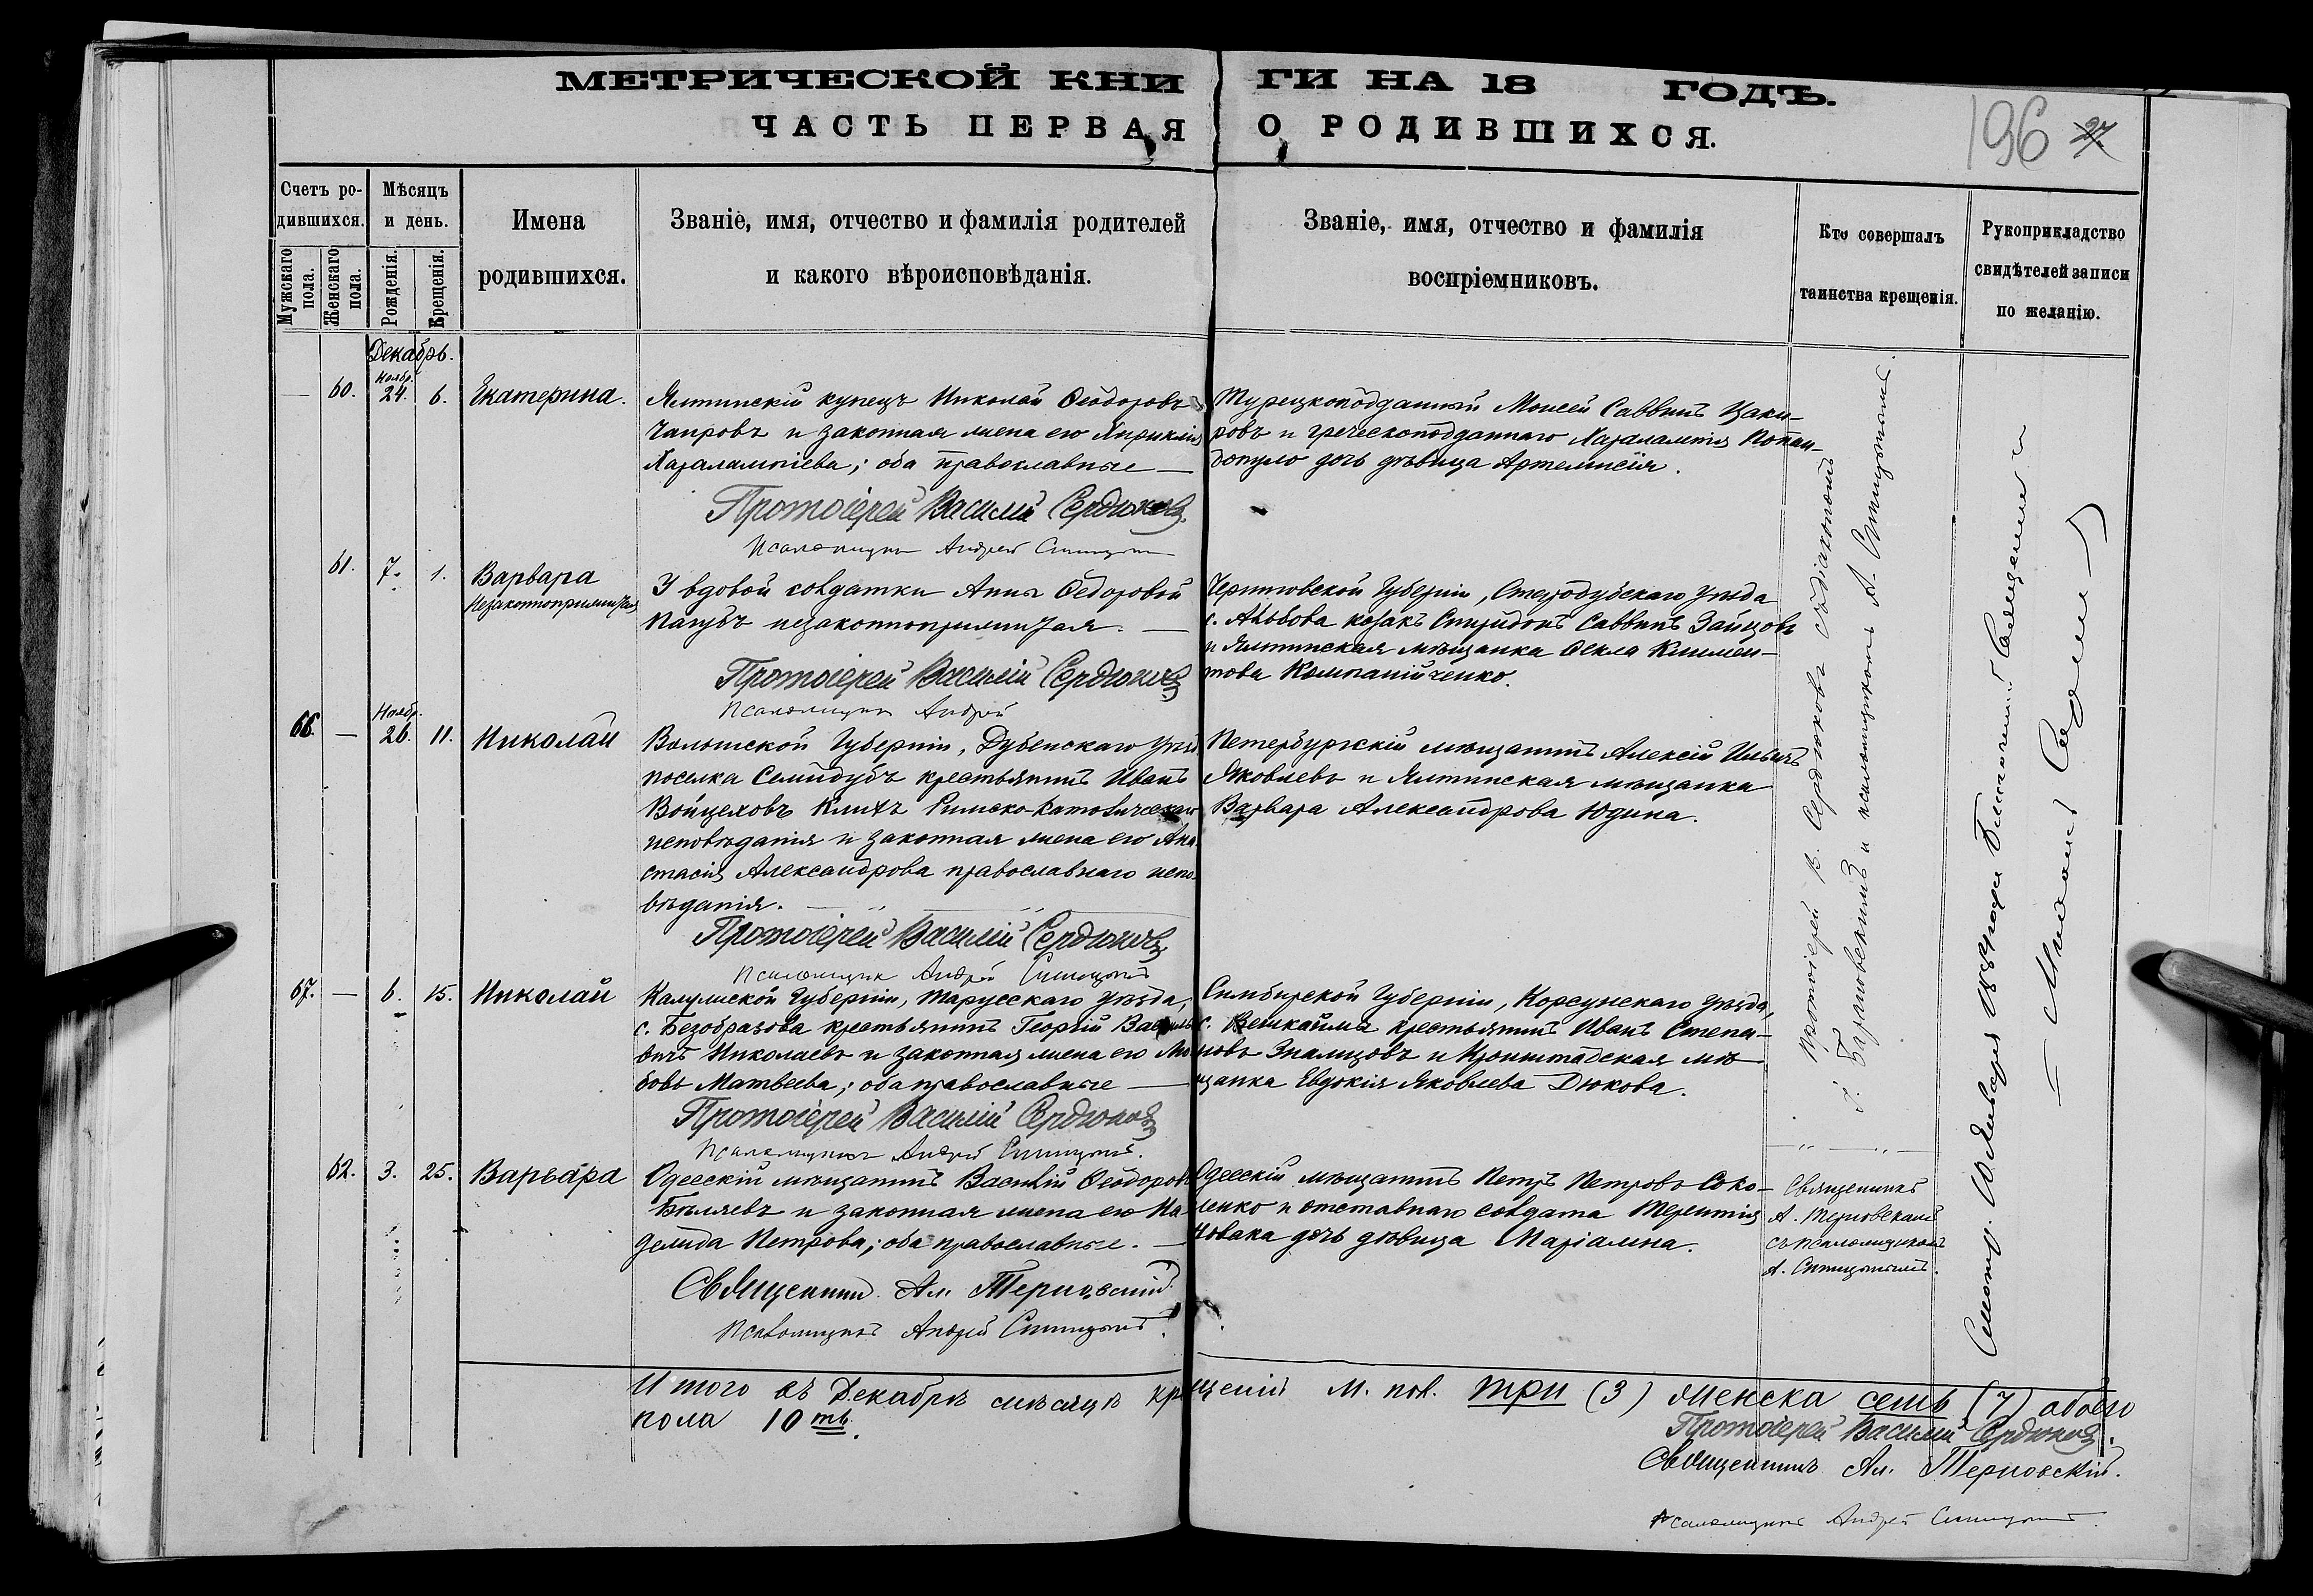 МЕТРИЧЕСКОЙ КНИГИ НА 18 ГОДЪ.
ЧАСТЬ ПЕРВАЯ О РОДИВШИХСЯ.
196 27
Счетъ родившихся.
Мужскаго пола.
Женскаго пола.
Мѣсяцъ и день.
Рожденія.
Крещенія.
Имена
родившихся.
Званіе, имя, отчество и фамилія родителей
и какого вѣроисповѣданія.
Званіе, имя, отчество и фамилія
воспріемниковъ.
Кто совершалъ
таинства крещенія.
Рукоприкладство
свидѣтелей записи
по желанію.
Декабрь.
— 60. Ноябр. 24. 6. Екатерина.
Ялтинскій купецъ Николай Ѳеодоровъ
Чаировъ и законная жена его
Харалампіева; оба православные —
Протоіерей Василій Сердюковъ.
Псаломщикъ Андрей Синицынъ
Турецкоподданный Моисей Саввинъ
и греческоподданнаго Харалампія Попан-
допуло дочь дѣвица Артемисія.
61. 7. 1. Варвара
незаконноприжитая
У вдовой солдатки Анны Ѳедоровой
незаконноприжитая. —
Протоіерей Василій Сердюковъ
Псаломщикъ Андрей
Черниговской Губерніи, Стародубскаго уѣзда
козакъ Спиридонъ Саввинъ Зайцовъ
и Ялтинская мѣщанка Ѳекла Климен-
това Компанійченко.
66. — Ноябр. 26. 11. Николай
Волынской Губерніи, Дубенскаго уѣзда
поселка Семидубъ крестьянинъ Иванъ
Войцеховъ Римско-Католическаго
исповѣданія и законная жена его Ана-
стасія Александрова православнаго испо-
вѣданія. —
Протоіерей Василій Сердюковъ
Псаломщикъ Андрей Синицынъ
Петербургскій мѣщанинъ Алексій Ильичъ
Яковлевъ и Ялтинская мѣщанка
Варвара Александрова Юдина.
67. — 6. 15. Николай
Калужской Губерніи, Тарусскаго уѣзда,
с. Безобразова крестьянинъ Георгій Василье-
вичъ Николаевъ и законная жена его Лю-
бовь Матвѣева; оба православные —
Протоіерей Василій Сердюковъ
Псаломщикъ Андрей Синицынъ.
Симбирской Губерніи, Корсунскаго уѣзда,
с. Вешкайма крестьянинъ Иванъ Степа-
новъ и Кронштадская мѣ-
щанка Евдокія Яковлева Дюкова.
62. 3. 25. Варвара
Одесскій мѣщанинъ Василій Ѳеодоровъ
Бѣляевъ и законная жена его На-
дежда Петрова; оба православные. —
Священникъ Ал. Терновскій
Псаломщикъ Андрей Синицынъ.
Одесскій мѣщанинъ Петръ Петровъ Соко-
ленко и отставнаго солдата Терентія
Новака дочь дѣвица Маріамна.
Протоіерей В. Сердюковъ съ діакономъ
и псаломщикомъ А. Синицынымъ.
Священникъ
А. Терновскій
съ псаломщикомъ
А. Синицынымъ.
Итого въ Декабрѣ мѣсяцѣ крещеній м. пол. три (3) женска семь (7) обоего
пола 10ть.
Протоіерей Василій Сердюковъ.
Священникъ Ал. Терновскій.
Псаломщикъ Андрей Синицынъ.